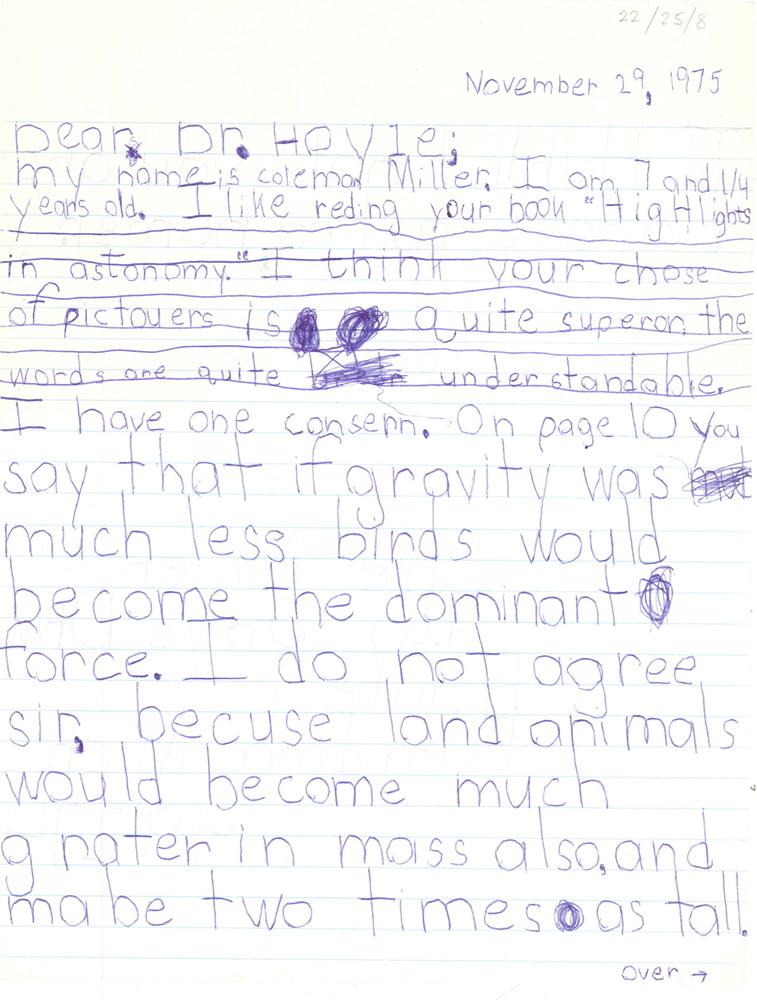 22/25/8
November 29, 1975
Dear, Dr. Hoyle;
my name is coleman Miller. I am 7 and 1/4
years old. I like reding your book "HigHlights
in astonomy." I think your chose
of pictouers is quite super on the
words are quite understandable.
I have one consern. On page 10 you
say that if gravity was
much less birds would
become the dominant
force. I do not agree
sir, becuse land animals
would become much
grater in mass also, and
mabe two times as tall.
over →